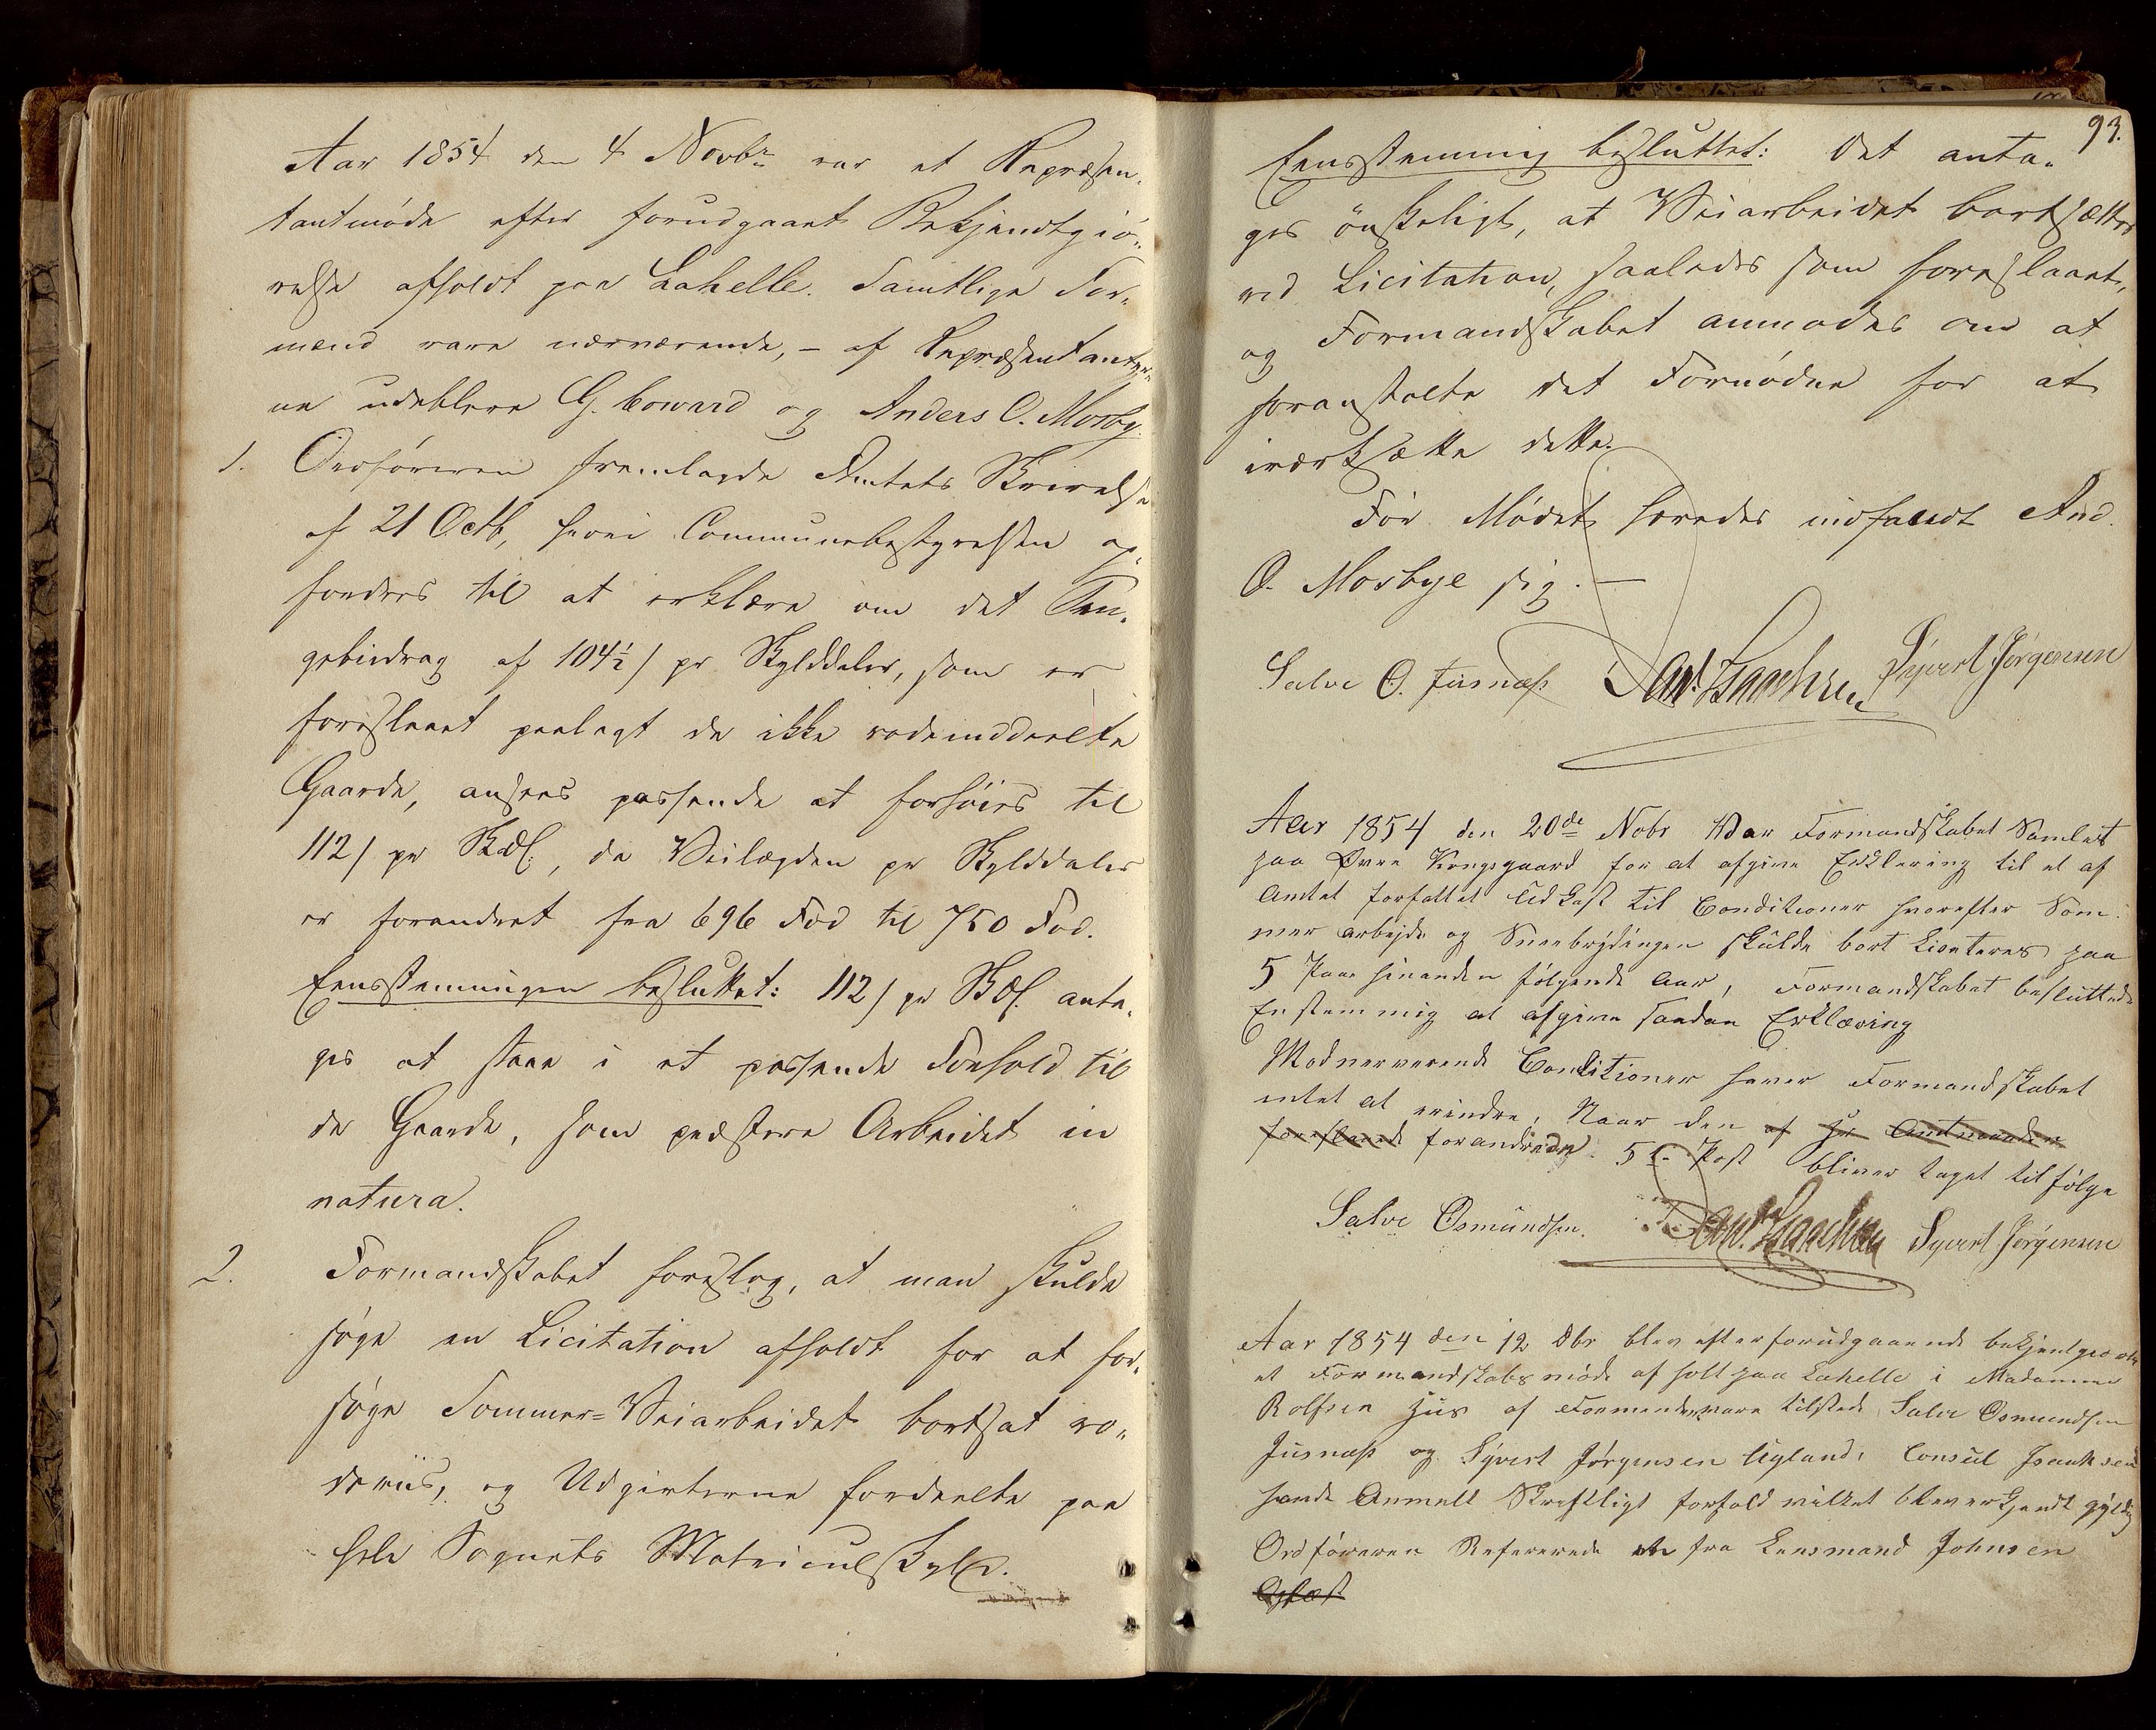 Aar 1854 den 4 Novbr var et Repræsen-
tantmøde efter forudgaaet Bekjendtgiø-
relse afholdt paa Lahelle. Samtlige For-
mænd vare nærværende, – af Repræsentanter-
ne udebleve G. Coward og Anders O. Mosby.
1. Ordføreren fremlagde Amtets Skrivelse
af 21 Octb, hvori Communebestyrelsen op-
fordres til at erklære om det Pen-
gebidrag af 104½ / pr Skylddaler, som er
foreslaaet paalagt de ikke rodeinddeelte
Gaarde, ansees passende at forhøies til
112 / pr Skdl., da Veilægden pr Skylddaler
er forandret fra 696 Fod til 750 Fod.
Eensstemmigen besluttet: 112 / pr Skdl. anta-
ges at staae i et passende Forhold til
de Gaarde, som præstere Arbeidet in
natura.
2. Formandskabet foreslog, at man skulde
søge en Licitation afholdt for at for-
søge Sommer-Veiarbeidet bortsat ro-
deviis, og Udgivterne fordeelte paa
hele Sognets Matriculskyld.
93.
Eensstemmig besluttet: Det anta-
ges ønskeligt, at Veiarbeidet bortsættes
ved Licitation, saaledes som foreslaaet,
og Formandskabet anmodes om at
foranstalte det Fornødne for at
iværksætte dette.
Før Mødet hævedes indfandt And.
O. Mosbye sig. –
Salve O. Justnæs Dan. Isaachsen Syvert Jørgensen
Aar 1854 den 20de Nobr Var Formandskabet Samlet
paa Øvre Kongsgaard for at afgive Erklering til et af
Amtet forfattet Udkast til Conditioner hvorefter Som-
mer arbejde og Sneebrydingen skulde bort Liciteres paa
5 paa hinanden følgende Aar, Formandskabet besluttede
Enstemmig at afgive saadan Erklæring
Mod nerverende Conditioner haver Formandskabet
intet at erindre, Naar den af Hr Amtmanden
foreslaaede forandrede 5te Post bliver taget tilfølge
Salve Osmundsen. Dan. Isaachsen Syvert Jørgensen
Aar 1854 den 12 Dbr blev efter forudgaaende bekjentgiørelse
et Formandskabsmøde afholt paa Lahelle i Madamme
Rolfsen Hus af Formendene vare tilstede Salve Osmundsen
Justnæs og Syvert Jørgensen Ugland, Consul Isaachsen
havde Anmelt Skriftligt forfald vilket blev erkjendt gyldig
Ordføreren Refererede en fra Lensmand Johnsen
Oplæst